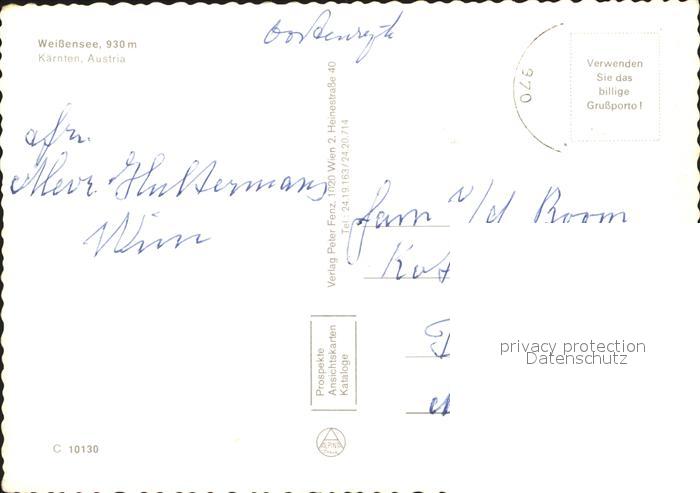 Weißensee, 930 m
Kärnten, Austria
970
Verwenden
Sie das
billige
Grußporto!
afz.
Mevr. Hultermans
Wim
Verlag Peter Fenz, 1020 Wien 2, Heinestraße 40
Tel.: 24.19.163 / 24.20.714
Fam v/d Room
Prospekte
Ansichtskarten
Kataloge
privacy protection
Datenschutz
C 10130